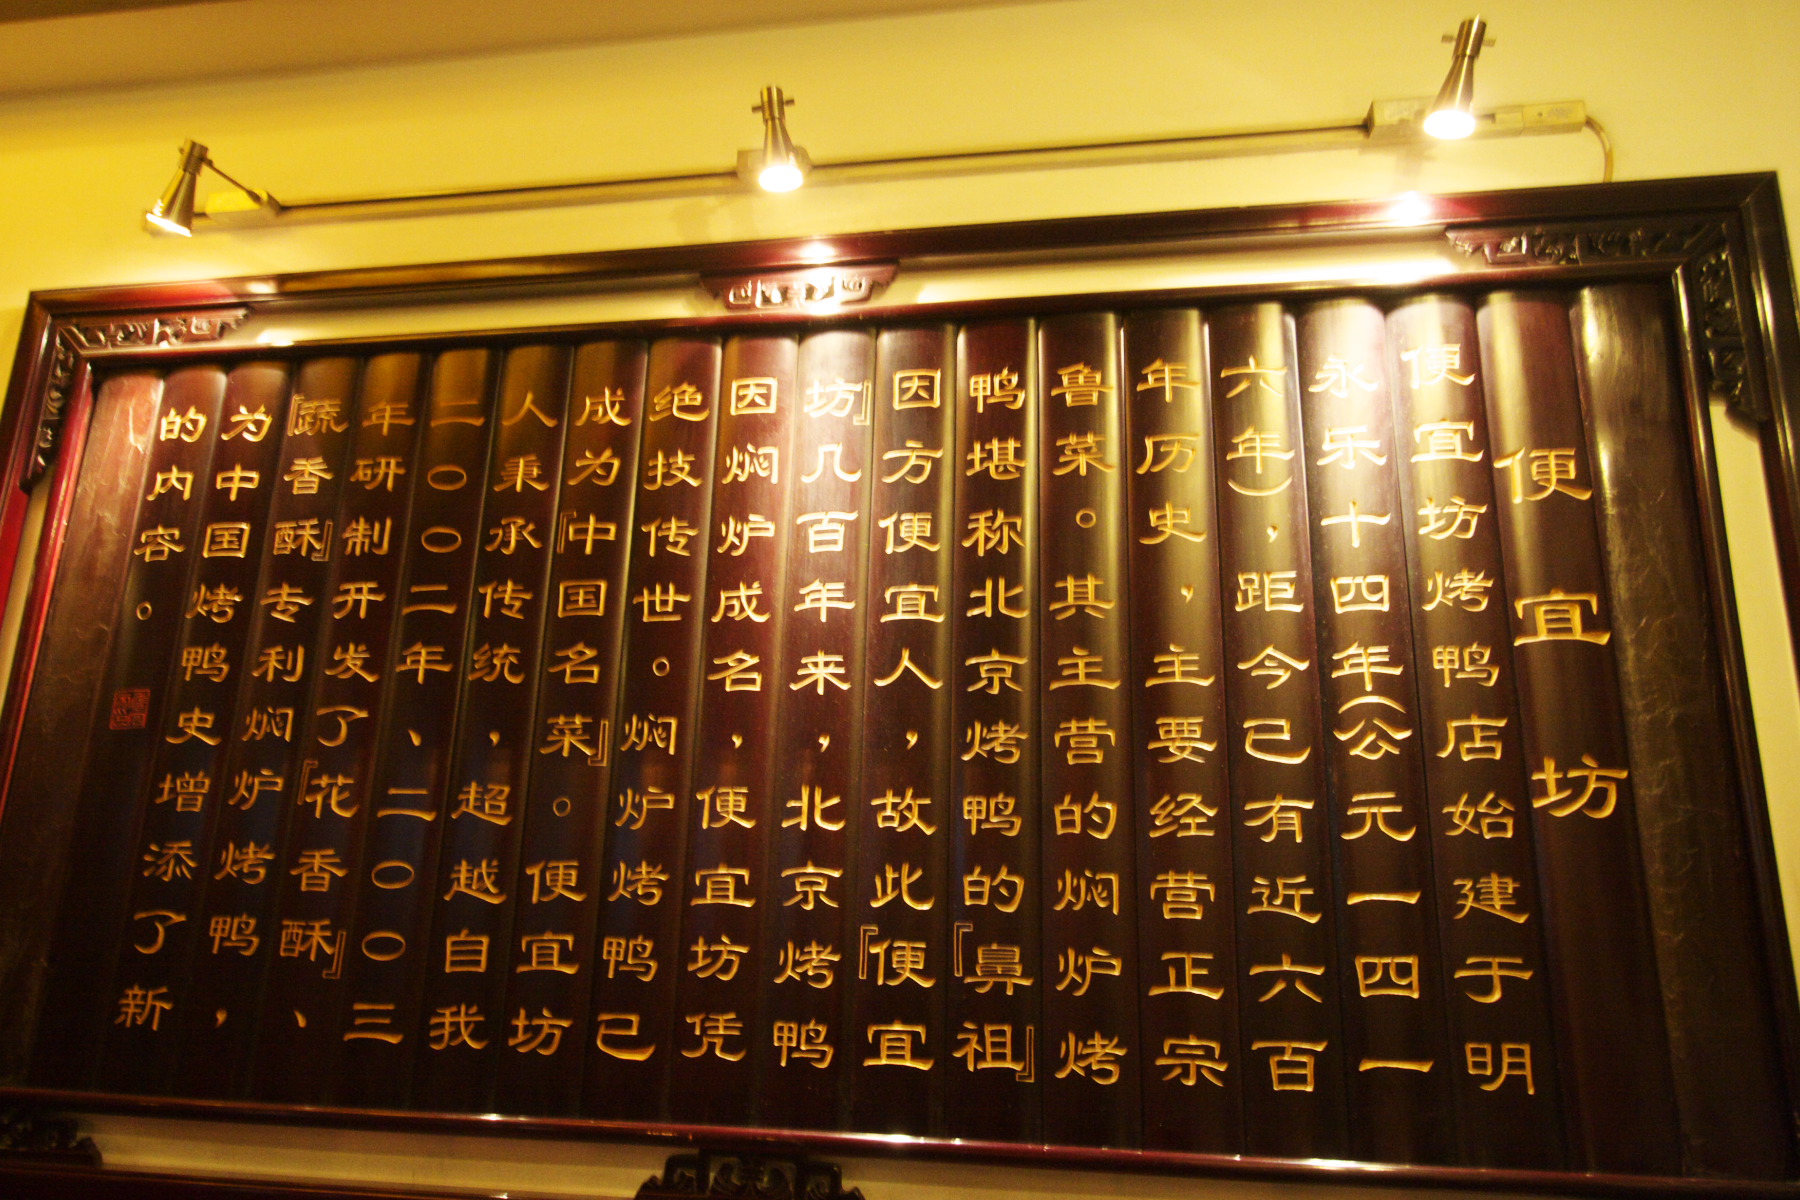 便宜坊
便宜坊烤鸭店始建于明
永乐十四年(公元一四一
六年)，距今已有近六百
年历史，主要经营正宗
鲁菜。其主营的焖炉烤
鸭堪称北京烤鸭的『鼻祖』
因方便宜人，故此『便宜
坊』几百年来，北京烤鸭
因焖炉成名，便宜坊凭
绝技传世。焖炉烤鸭已
成为『中国名菜』。便宜坊
人秉承传统，超越自我
二〇〇二年、二〇〇三
年研制开发了『花香酥』、
『蔬香酥』专利焖炉烤鸭，
为中国烤鸭史增添了新
的内容。